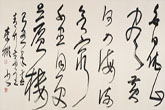 白日依山
盡黄
河入海流
欲窮
千里目更上
一層樓